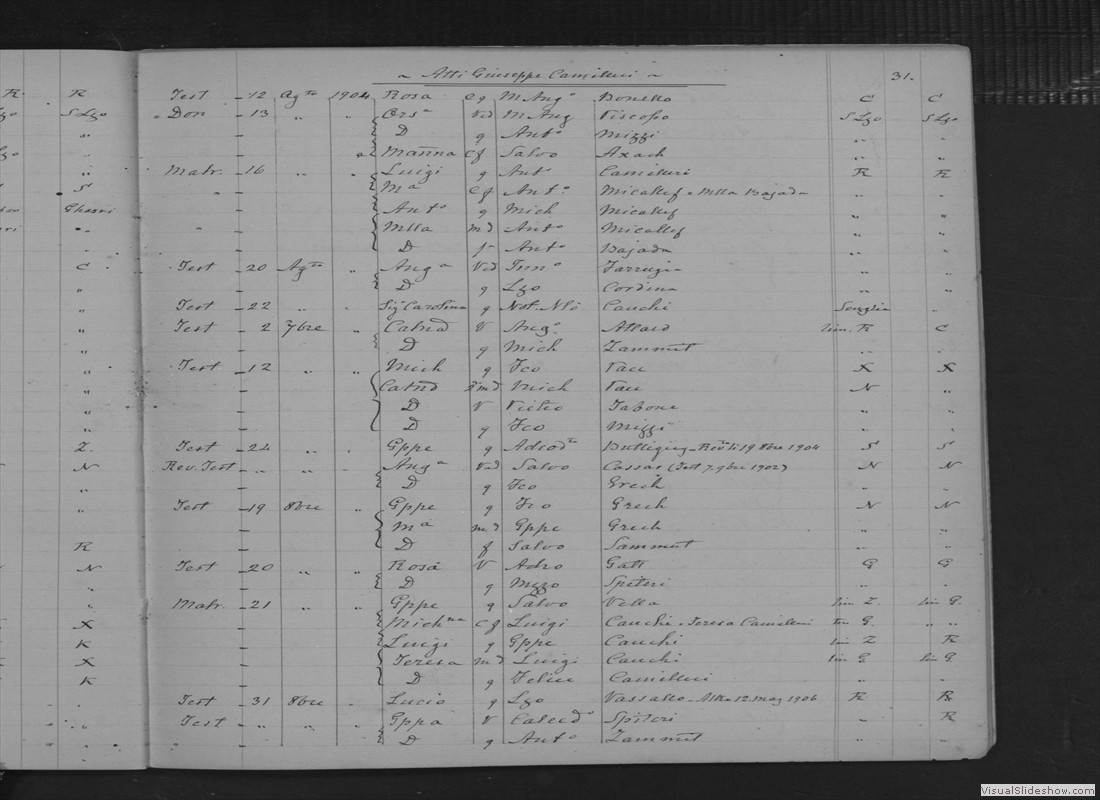 ~ Atti Giuseppe Camilleri ~ 31.
R. R Test - 12 Ag.to 1904 Rosa cg M Ang.o Bonello C C
S Lzo Don - 13 " " Ors.a Ved M Ang Viscoso S Lzo S Lzo
" D g Ant.o Mizzi " "
Marina cf Salvo Axach " "
" Matr. - 16 " " Luigi g Ant.o Camilleri R R
S M.a cf Ant.o Micallef Mlla Bajada
Ghasri Ant.o g Mich Micallef " "
Mlla md Ant.o Micallef " "
D f Ant.o Bajada " "
C Test - 20 Ag.to " Ang.a Ved Inn.o Farrugia " "
" D g Lzo Cordina " "
" Test - 22 " " Sig.a Carolina g Not. Nlo Cauchi Senglia "
" Test - 2 7bre " Catnd V Ang.o Attard lim. R C
" D g Mich Zammit " "
" Test - 12 " " Mich g Fco Vacc X X
" Catnd md Mich Vacc N "
" D V Vietro Tabone " "
" D g Fco Mizzi " "
Z. Test - 24 " " Gppe g Adeod.to Buttigieg 19 8bre 1904 S S
N Rev. Test - " " Ang.a Ved Salvo Cassar (Test 7 9bre 1902) N N
" D g Fco Grech " "
" Test - 19 8bre " Gppe g Fco Grech N N
M.a md Gppe Grech " "
R D f Salvo Sammut " "
N Test - 20 " " Rosa V Adeo Gatt G G
" D g Mzzo Spiteri " "
" Matr. - 21 " " Gppe g Salvo Vella lim Z. lim G.
X Mich.na cf Luigi Cauchi Teresa Camilleri G. " "
K Luigi g Gppe Cauchi lim Z R
X Teresa md Luigi Cauchi lim G lim G
K D g Felice Camilleri " "
" Test - 31 8bre Lucio g Lzo Vassallo 12 Mag 1906 R R
" Test - " " Gppa V Calced.o Spiteri " R
" D g Ant.o Zammit " "
VisualSlideshow.com